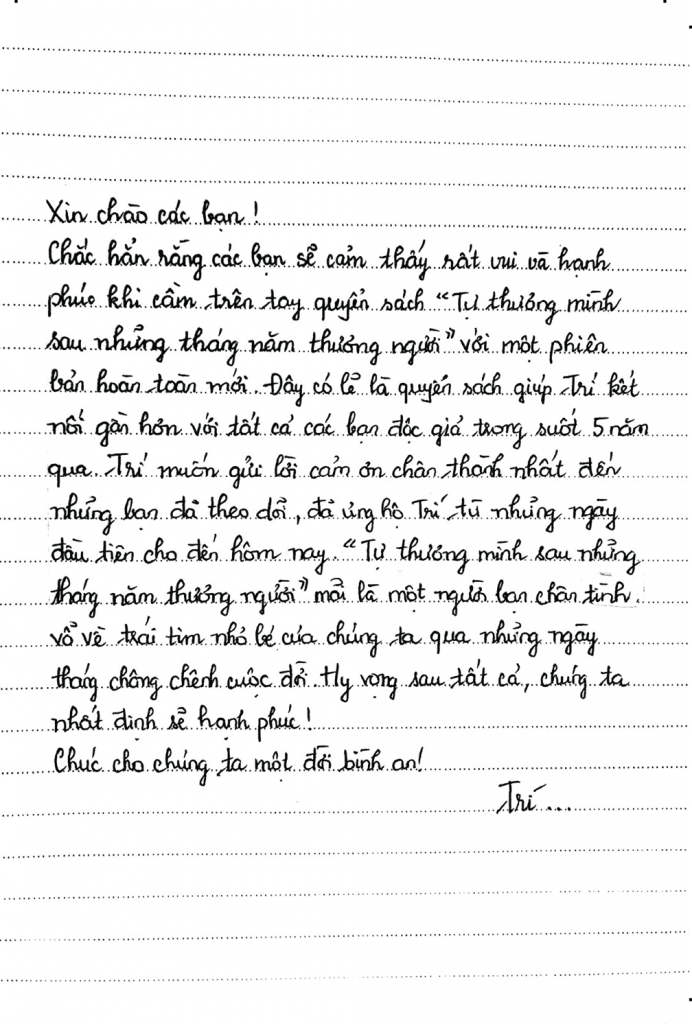 Xin chào các bạn!
Chắc hẳn rằng các bạn sẽ cảm thấy rất vui và hạnh
phúc khi cầm trên tay quyển sách "Tự thương mình
sau những tháng năm thương người" với một phiên
bản hoàn toàn mới. Đây có lẽ là quyển sách giúp Trí kết
nối gần hơn với tất cả các bạn độc giả trong suốt 5 năm
qua. Trí muốn gửi lời cảm ơn chân thành nhất đến
những bạn đã theo dõi, đã ủng hộ Trí từ những ngày
đầu tiên cho đến hôm nay. "Tự thương mình sau những
tháng năm thương người" mãi là một người bạn chân tình
vỗ về trái tim nhỏ bé của chúng ta qua những ngày
tháng chông chênh cuộc đời. Hy vọng sau tất cả, chúng ta
nhất định sẽ hạnh phúc!
Chúc cho chúng ta một đời bình an!
Trí...